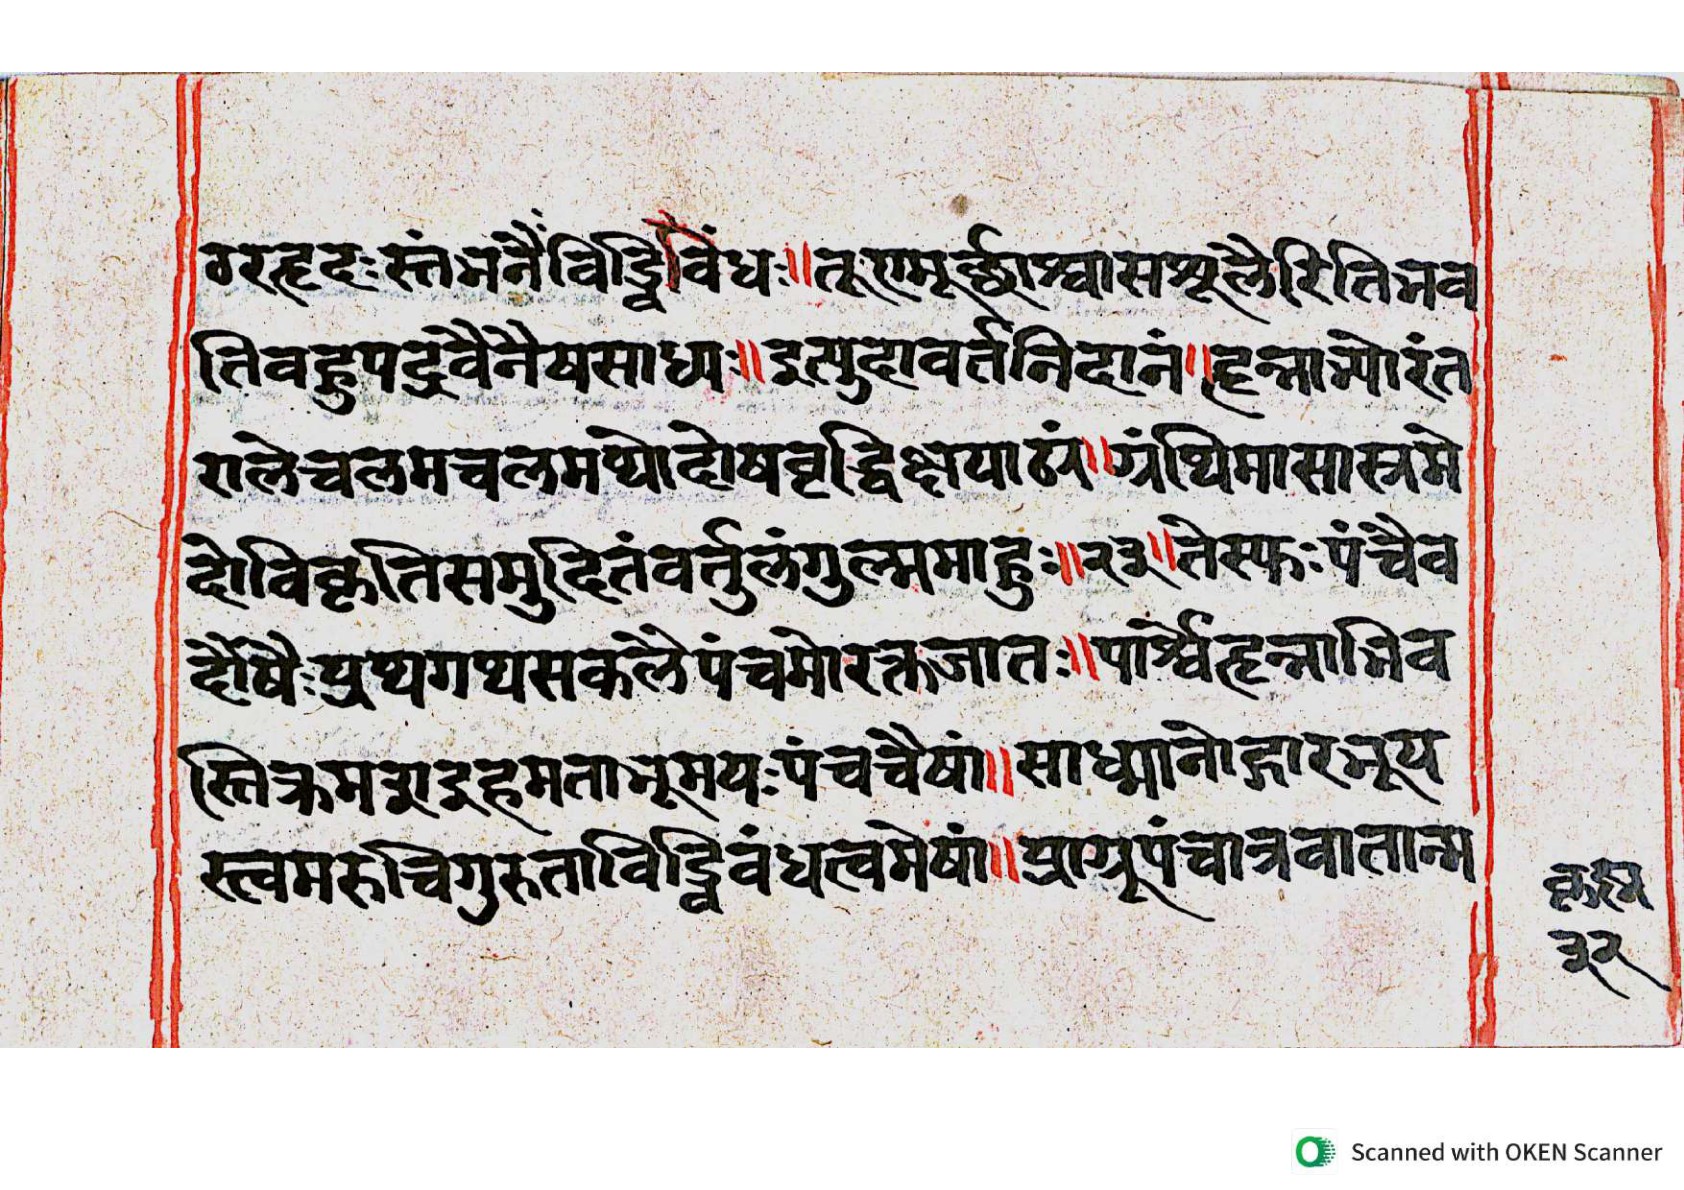 ठरहृदः स्तंभनैंर्विड्विबंधः॥तृण्मूर्छाश्वासशूलैरितिभव
तिबहुपद्रवैनैषसाध्यः॥इत्युदावर्तनिदानं॥हृन्नाभ्योरंत
रालेचलमचलमथोदोषवृद्धिक्षयाढ्यं॥ग्रंथिमासास्त्रमे
दोविकृतिसमुदितंवर्तुलंगुल्ममाहुः॥२३॥तेस्फःपंचैव
दोषैःप्रथ्यगथसकलैपंचमोरक्तजातः॥पार्श्वेहृन्नाभिव
स्तिक्रमइहमताभूमयःपंचचैषां॥साध्मानोद्गारभूय
स्त्वमरुचिगुरुताविड्विबंधत्वमेषां॥प्राग्रूपंचात्रवातान्म
३२
Scanned with OKEN Scanner